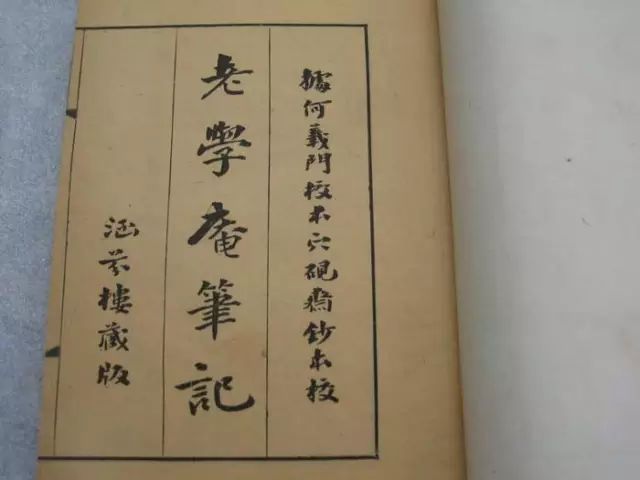 據何義門校本穴硯齋鈔本校
老學庵筆記
涵芬樓藏版